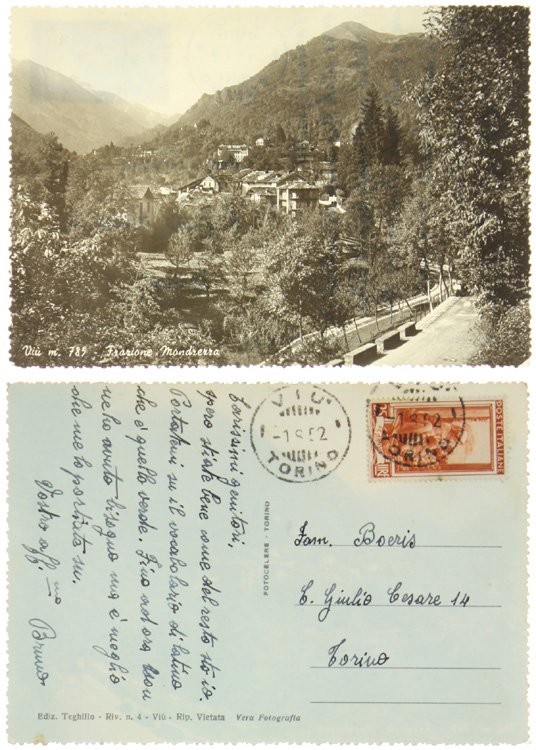 Viù m. 785 - Frazione Mondrezza
Carissimi genitori,
spero stiate bene come del resto sto io.
Portatemi su il vocabolario di latino
che è quello verde. Fino ad ora non
ne ho avuto bisogno ma è meglio
che me lo portiate su.
Vostro aff.mo
Bruno
VIÙ
-1.9.52
TORINO
-1.9.52
TORINO
POSTE ITALIANE
LIRE
FOTOCELERE - TORINO
Fam. Boeris
C. Giulio Cesare 14
Torino
Ediz. Teghillo - Riv. n. 4 - Viù - Rip. Vietata Vera Fotografia